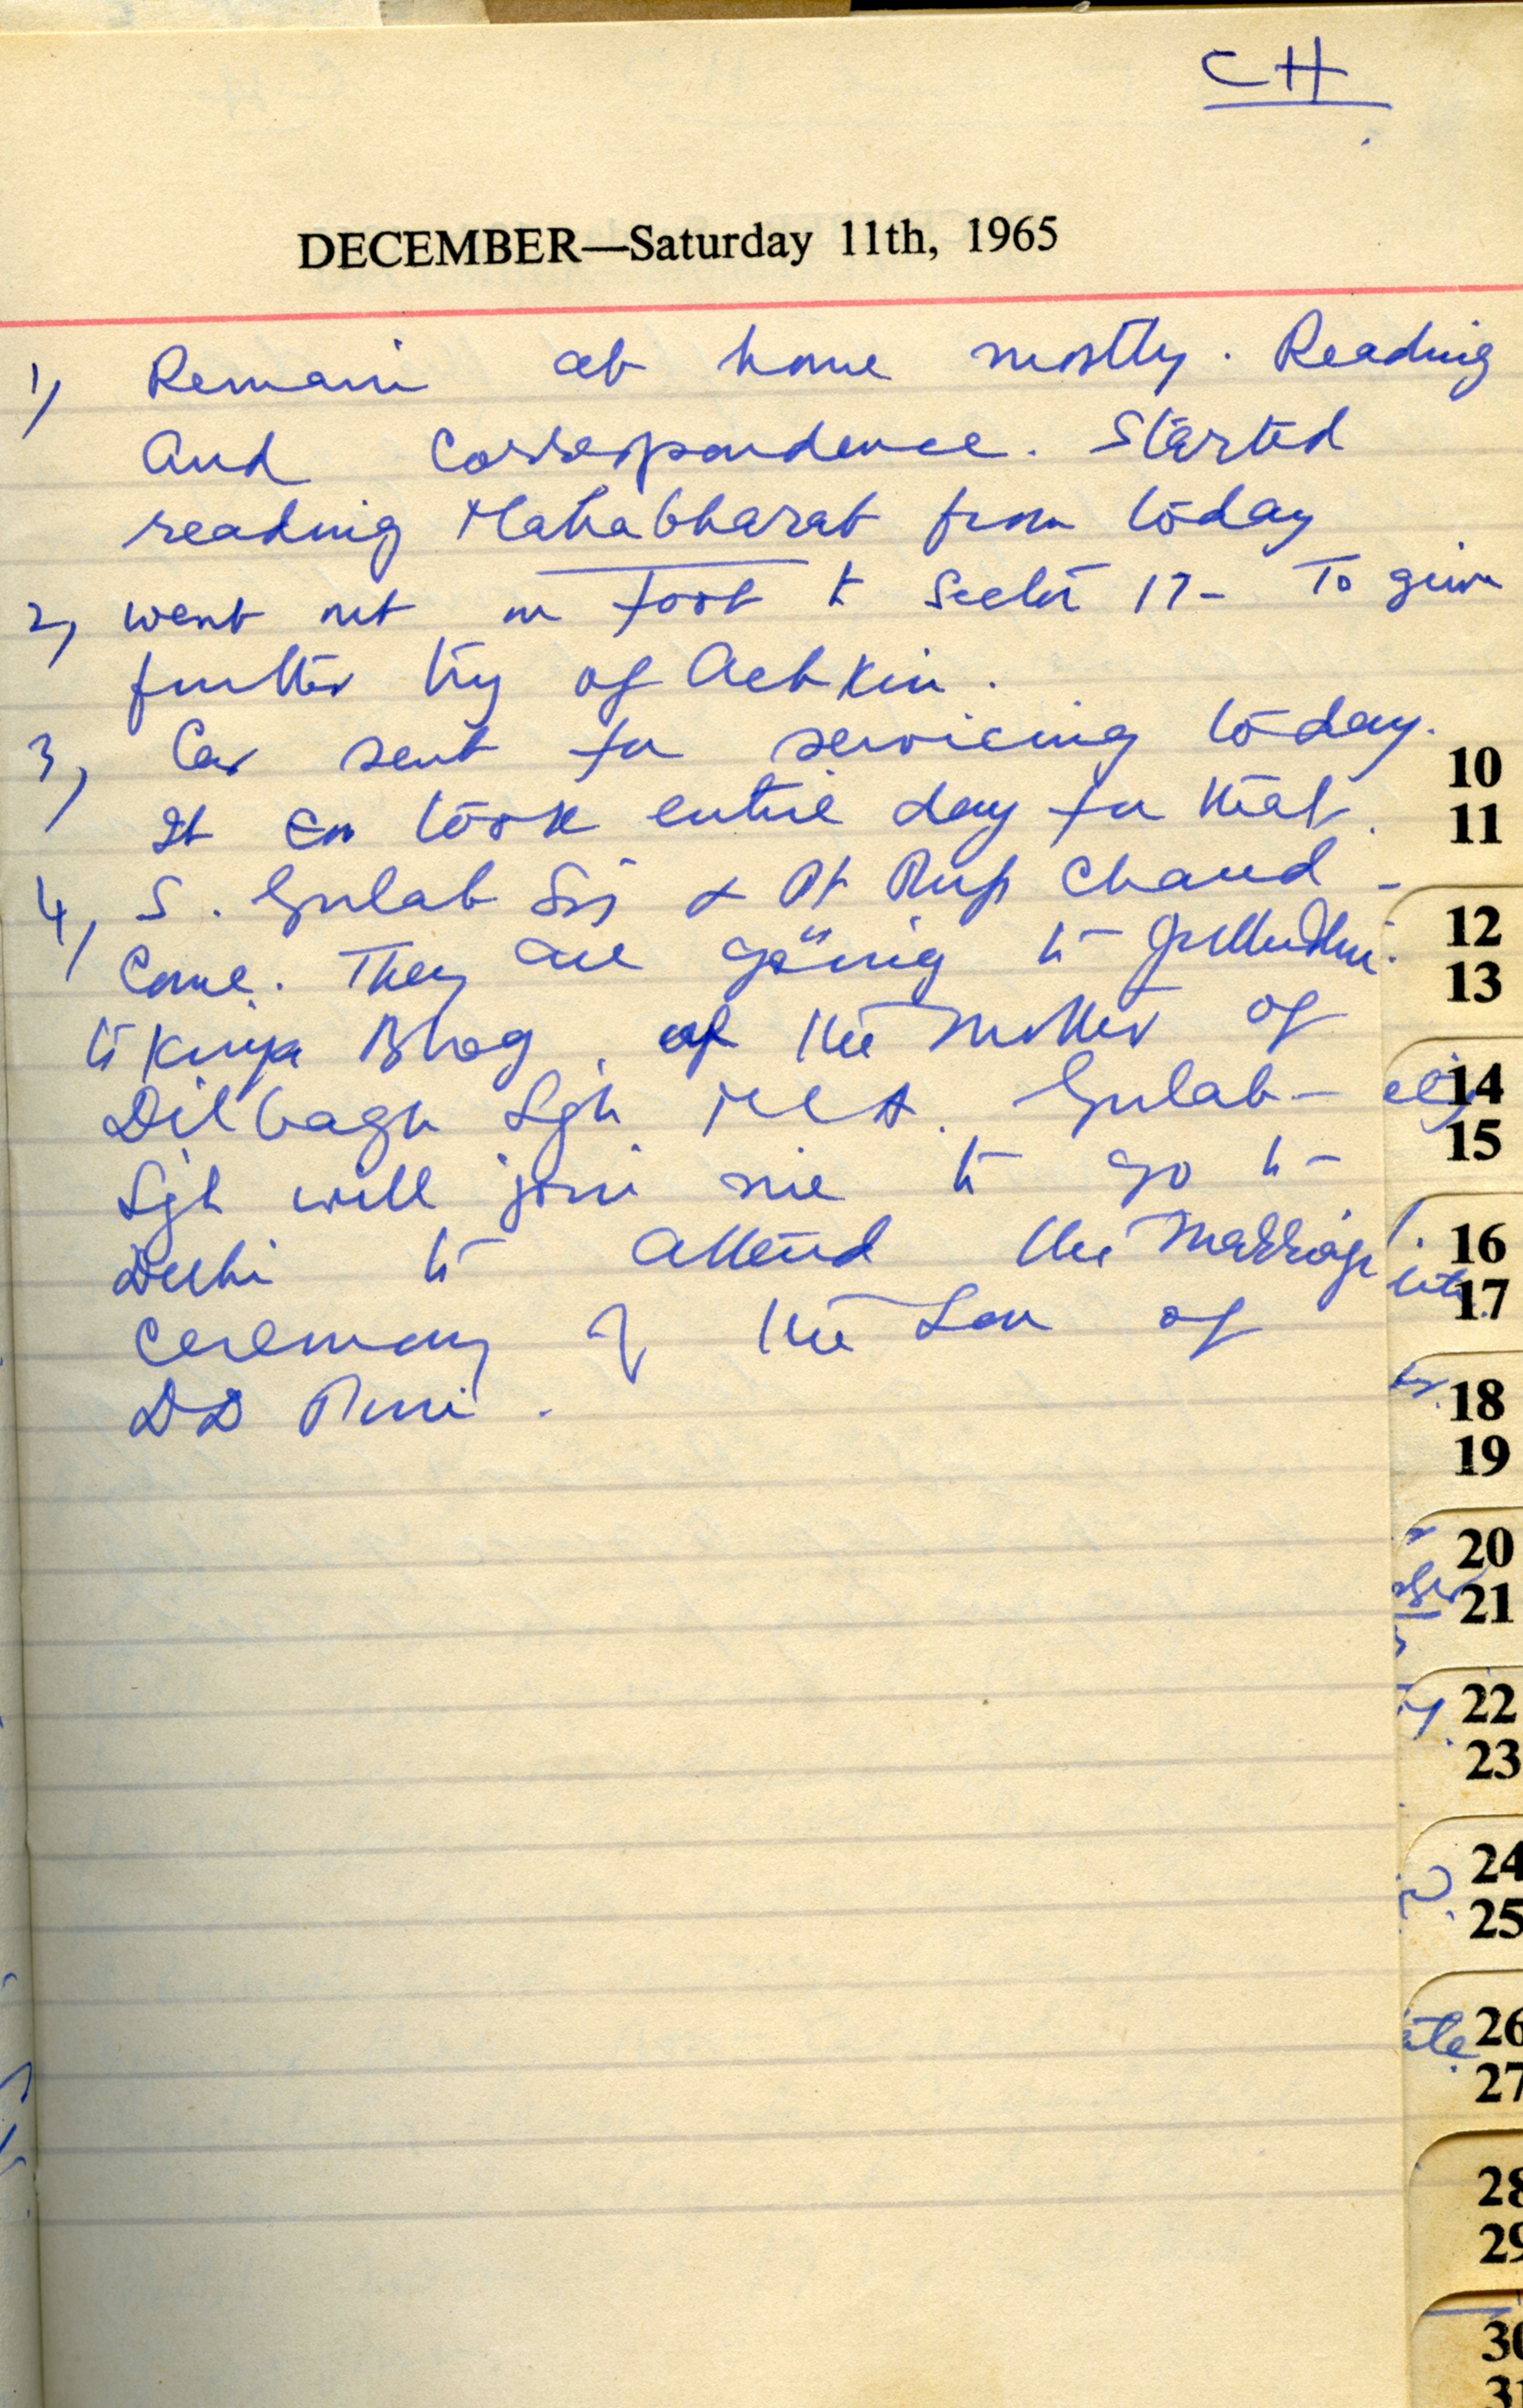 CH
DECEMBER—Saturday 11th, 1965
1) Remain at home mostly. Reading
and correspondence. Started
reading Mahabharat from today
2) Went out on foot to Sector 17- To give
further try of Achkin.
3) Car sent for servicing today.
It took entire day for that.
4) S. Gulab Sing & Pt Rup Chand -
Come. They are going to Jullundur.
to Bhog. of the mother of
Dilbagh Sgh MLA. Gulab-
Sgh will join me to go to
Delhi to attend the marriage
ceremony of the Son of
DD Puri.
10
11
12
13
14
15
16
17
18
19
20
21
22
23
24
25
26
27
28
29
30
31